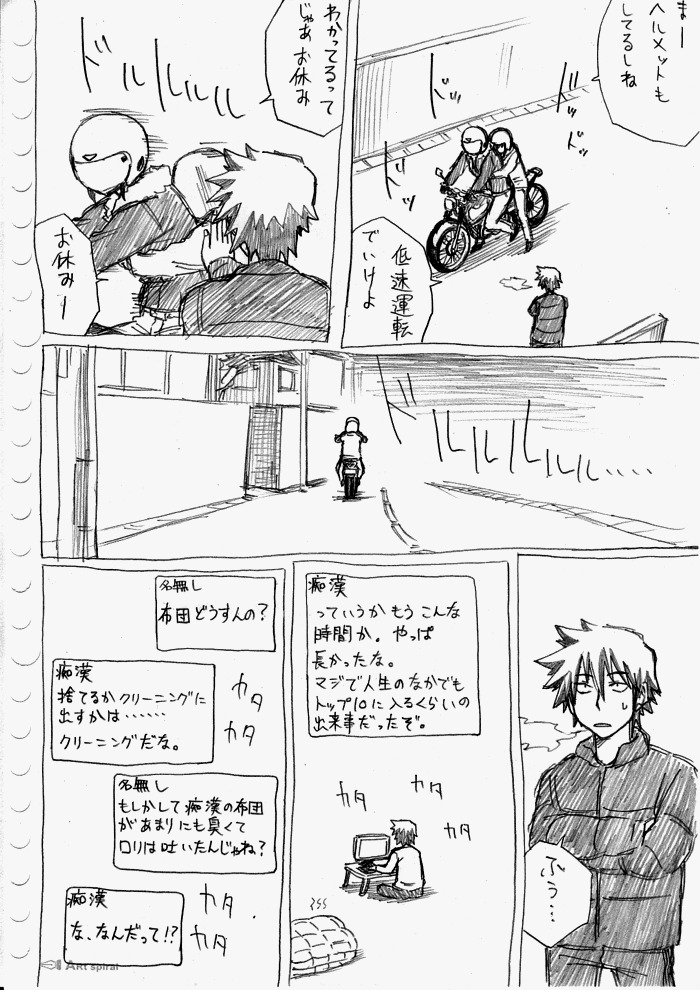 まー
ヘルメットも
してるしね
ドッ
ドッ
ドッ
ドッ
低速運転
でいけよ
わかってるって
じゃあお休み
ドルルルルル
お休みー
ドルルルルル・・・・・
ふぅ…
痴漢
っていうかもうこんな
時間か。やっぱ
長かったな。
マジで人生のなかでも
トップ10に入るくらいの
出来事だったぞ。
カタ
カタ
カタ
名無し
布団どうすんの？
痴漢
捨てるかクリーニングに
出すかは……
クリーニングだな。
カタ
カタ
名無し
もしかして痴漢の布団
があまりにも臭くて
ロリは吐いたんじゃね？
痴漢
な、なんだって!?
カタ
カタ
Art spiral